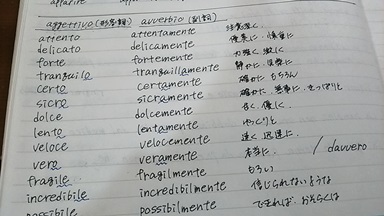 aggettivo (形容詞) avverbio (副詞)
attento attentamente 注意深く
delicato delicamente 優美に 慎重に
forte fortemente 力強く 激しく
tranquilo tranquillamente 静かに
certo certamente 確かに もちろん
sicro sicramente 確かに きっぱりと
dolce dolcemente 甘く 優しく
lento lentamente ゆっくりと
veloce velocemente 速く 迅速に
vero veramente 本当に / davvero
fragile fragilmente もろい
incredibile incredibilmente 信じられないような
possibile possibilmente できれば、おそらくは